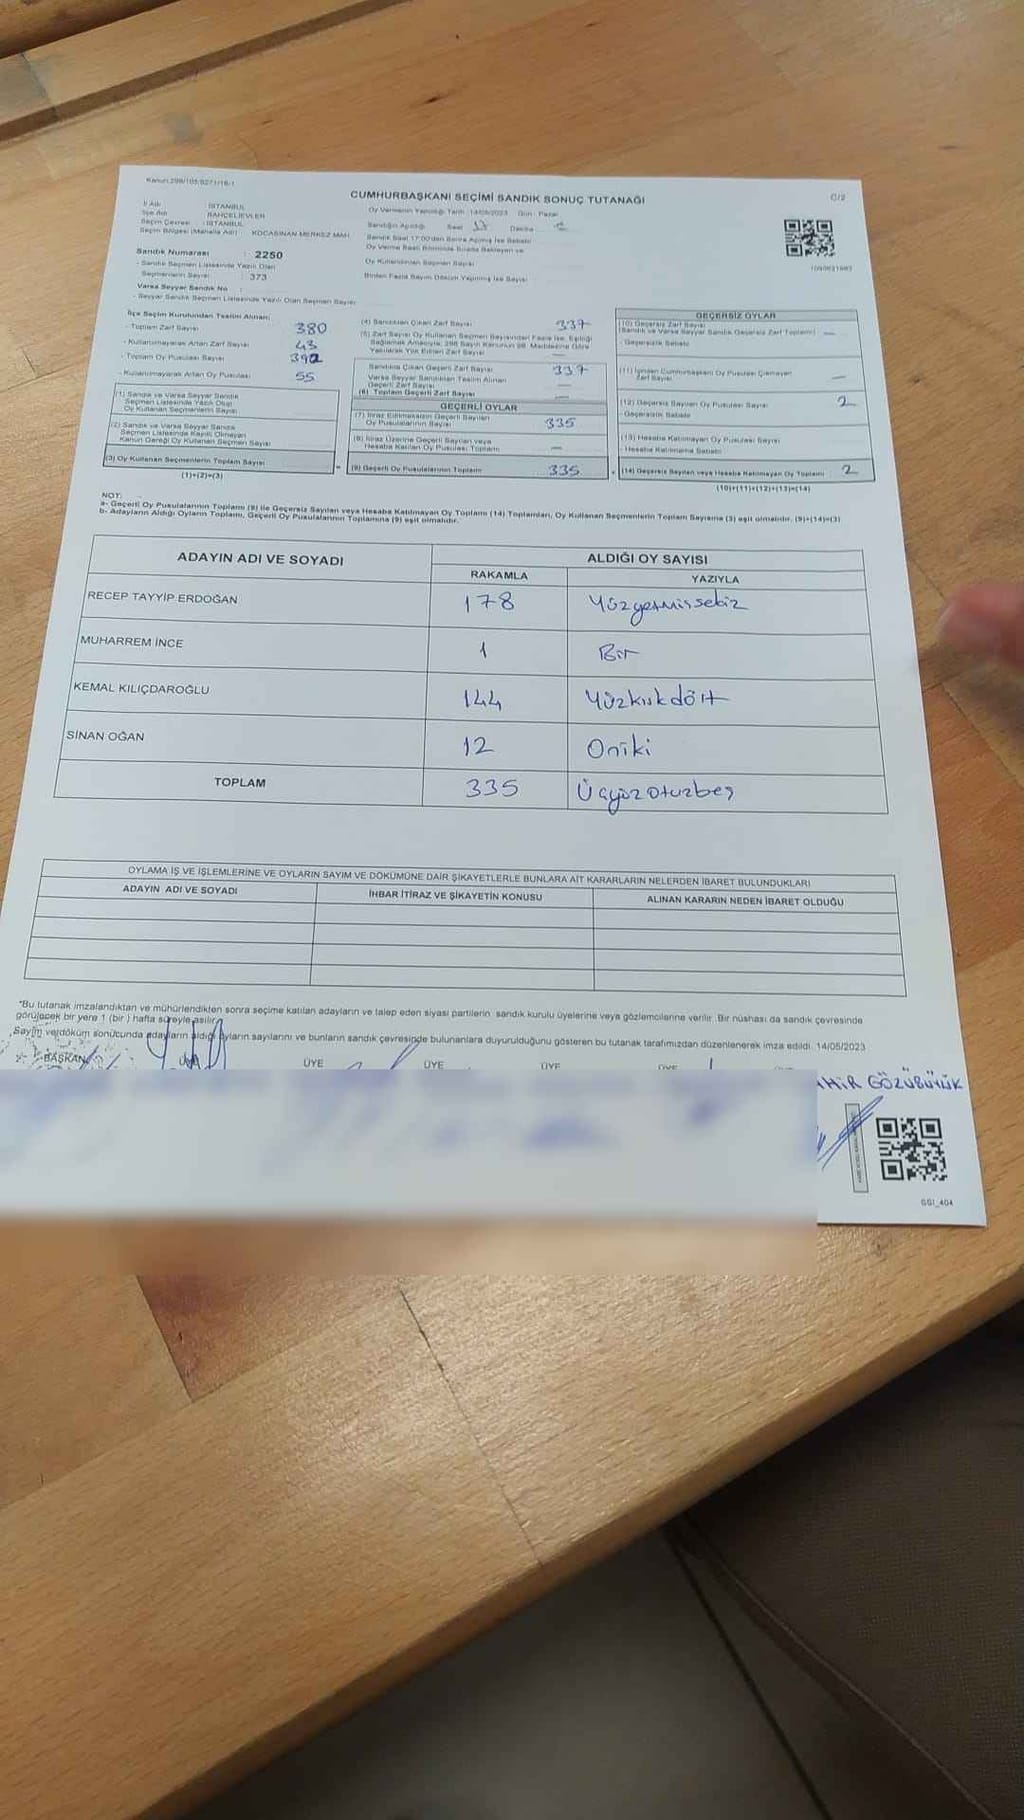 Kanun:298/105/6271/16-1
CUMHURBAŞKANI SEÇİMİ SANDIK SONUÇ TUTANAĞI
C/2
İl Adı : İSTANBUL
İlçe Adı : BAHÇELİEVLER
Seçim Çevresi : İSTANBUL
Seçim Bölgesi (Mahalle Adı) : KOCASİNAN MERKEZ MAH.
Sandık Numarası : 2250
- Sandık Seçmen Listesinde Yazılı Olan
Seçmenlerin Sayısı : 373
Varsa Seyyar Sandık No :
- Seyyar Sandık Seçmen Listesinde Yazılı Olan Seçmen Sayısı
Oy Vermenin Yapıldığı Tarih :14/05/2023 Gün : Pazar
Sandığın Açıldığı Saat 17 Dakika
Sandık Saat 17:00'den Sonra Açılmış İse Sebebi
Oy Verme Saati Bitiminde Sırada Bekleyen ve
Oy Kullandırılan Seçmen Sayısı
Birden Fazla Sayım Döküm Yapılmış İse Sayısı
İlçe Seçim Kurulundan Teslim Alınan;
- Toplam Zarf Sayısı 380
- Kullanılmayarak Artan Zarf Sayısı 43
- Toplam Oy Pusulası Sayısı
- Kullanılmayarak Artan Oy Pusulası 55
(1) Sandık ve Varsa Seyyar Sandık
Seçmen Listesinde Yazılı Olup
Oy Kullanan Seçmenlerin Sayısı
(2) Sandık ve Varsa Seyyar Sandık
Seçmen Listesinde Kayıtlı Olmayan
Kanun Gereği Oy Kullanan Seçmen Sayısı
(3) Oy Kullanan Seçmenlerin Toplam Sayısı
(1)+(2)=(3)
(4) Sandıktan Çıkan Zarf Sayısı 337
(5) Zarf Sayısı Oy Kullanan Seçmen Sayısından Fazla İse, Eşitliği
Sağlamak Amacıyla, 298 Sayılı Kanunun 98. Maddesine Göre
Yakılarak Yok Edilen Zarf Sayısı —
Sandıkta Çıkan Geçerli Zarf Sayısı 337
Varsa Seyyar Sandıktan Teslim Alınan
Geçerli Zarf Sayısı —
(6) Toplam Geçerli Zarf Sayısı —
GEÇERLİ OYLAR
(7) İtiraz Edilmeksizin Geçerli Sayılan
Oy Pusulalarının Sayısı 335
(8) İtiraz Üzerine Geçerli Sayılan veya
Hesaba Katılan Oy Pusulası Toplamı —
(9) Geçerli Oy Pusulalarının Toplamı 335
GEÇERSİZ OYLAR
(10) Geçersiz Zarf Sayısı
(Sandık ve Varsa Seyyar Sandık Geçersiz Zarf Toplamı) —
- Geçersizlik Sebebi
(11) İçinden Cumhurbaşkanı Oy Pusulası Çıkmayan
Zarf Sayısı —
(12) Geçersiz Sayılan Oy Pusulası Sayısı 2
- Geçersizlik Sebebi
(13) Hesaba Katılmayan Oy Pusulası Sayısı
- Hesaba Katılmama Sebebi
(14) Geçersiz Sayılan veya Hesaba Katılmayan Oy Toplamı 2
(10)+(11)+(12)+(13)=(14)
NOT:
a- Geçerli Oy Pusulalarının Toplamı (9) ile Geçersiz Sayılan veya Hesaba Katılmayan Oy Toplamı (14) Toplamları, Oy Kullanan Seçmenlerin Toplam Sayısına (3) eşit olmalıdır. (9)+(14)=(3)
b- Adayların Aldığı Oyların Toplamı, Geçerli Oy Pusulalarının Toplamına (9) eşit olmalıdır.
ADAYIN ADI VE SOYADI ALDIĞI OY SAYISI
RAKAMLA YAZIYLA
RECEP TAYYİP ERDOĞAN 178 Yüzyetmişsekiz
MUHARREM İNCE 1 Bir
KEMAL KILIÇDAROĞLU 144 Yüzkırkdört
SİNAN OĞAN 12 Oniki
TOPLAM 335 Üçyüzotuzbeş
OYLAMA İŞ VE İŞLEMLERİNE VE OYLARIN SAYIM VE DÖKÜMÜNE DAİR ŞİKAYETLERLE BUNLARA AİT KARARLARIN NELERDEN İBARET BULUNDUKLARI
ADAYIN ADI VE SOYADI İHBAR İTİRAZ VE ŞİKAYETİN KONUSU ALINAN KARARIN NEDEN İBARET OLDUĞU
*Bu tutanak imzalandıktan ve mühürlendikten sonra seçime katılan adayların ve talep eden siyasi partilerin sandık kurulu üyelerine veya gözlemcilerine verilir. Bir nüshası da sandık çevresinde
görülecek bir yere 1 (bir ) hafta süreyle asılır.
Sayım ve döküm sonucunda adayların aldığı oyların sayılarını ve bunların sandık çevresinde bulunanlara duyurulduğunu gösteren bu tutanak tarafımızdan düzenlenerek imza edildi. 14/05/2023
BAŞKAN ÜYE ÜYE ÜYE ÜYE ÜYE
AHİR GÖZÜBÜYÜK
GGI_404